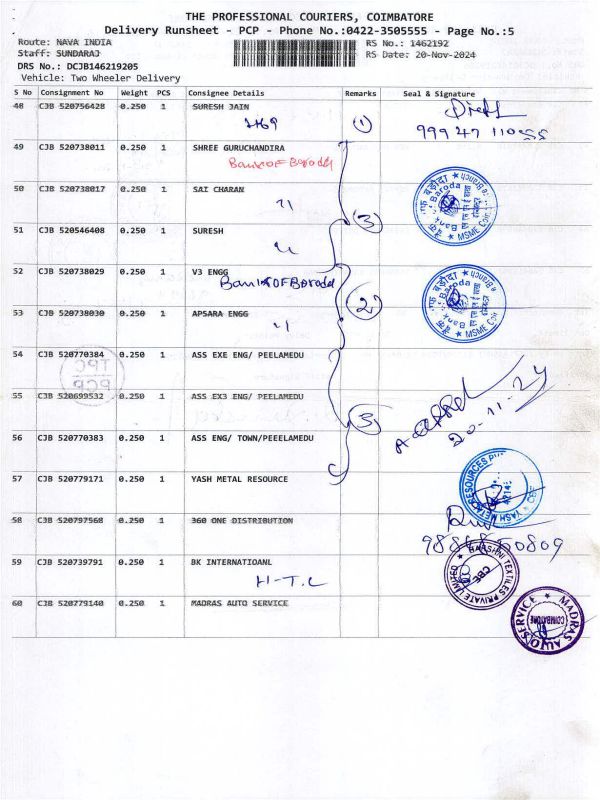 THE PROFESSIONAL COURIERS, COIMBATORE
Delivery Runsheet - PCP - Phone No.:0422-3505555 - Page No.:5
Route: NAVA INDIA
RS No.: 1462192
Staff: SUNDARAJ
RS Date: 20-Nov-2024
DRS No.: DCJB146219205
Vehicle: Two Wheeler Delivery
S No Consignment No Weight PCS Consignee Details Remarks Seal & Signature
48 CJB 520756428 0.250 1 SURESH JAIN
(1)
49 CJB 520738011 0.250 1 SHREE GURUCHANDIRA
Bank OF Baroda
50 CJB 520738017 0.250 1 SAI CHARAN
(3)
51 CJB 520546408 0.250 1 SURESH
52 CJB 520738029 0.250 1 V3 ENGG
Bank OF Baroda
(2)
53 CJB 520738030 0.250 1 APSARA ENGG
54 CJB 520770384 0.250 1 ASS EXE ENG/ PEELAMEDU
55 CJB 520699532 0.250 1 ASS EX3 ENG/ PEELAMEDU
(3)
20-11-24
56 CJB 520770383 0.250 1 ASS ENG/ TOWN/PEEELAMEDU
57 CJB 520779171 0.250 1 YASH METAL RESOURCE
58 CJB 520797568 0.250 1 360 ONE DISTRIBUTION
59 CJB 520739791 0.250 1 BK INTERNATIOANL
H-T.C
60 CJB 520779140 0.250 1 MADRAS AUTO SERVICE
MADRAS AUTO SERVICE
COIMBATORE